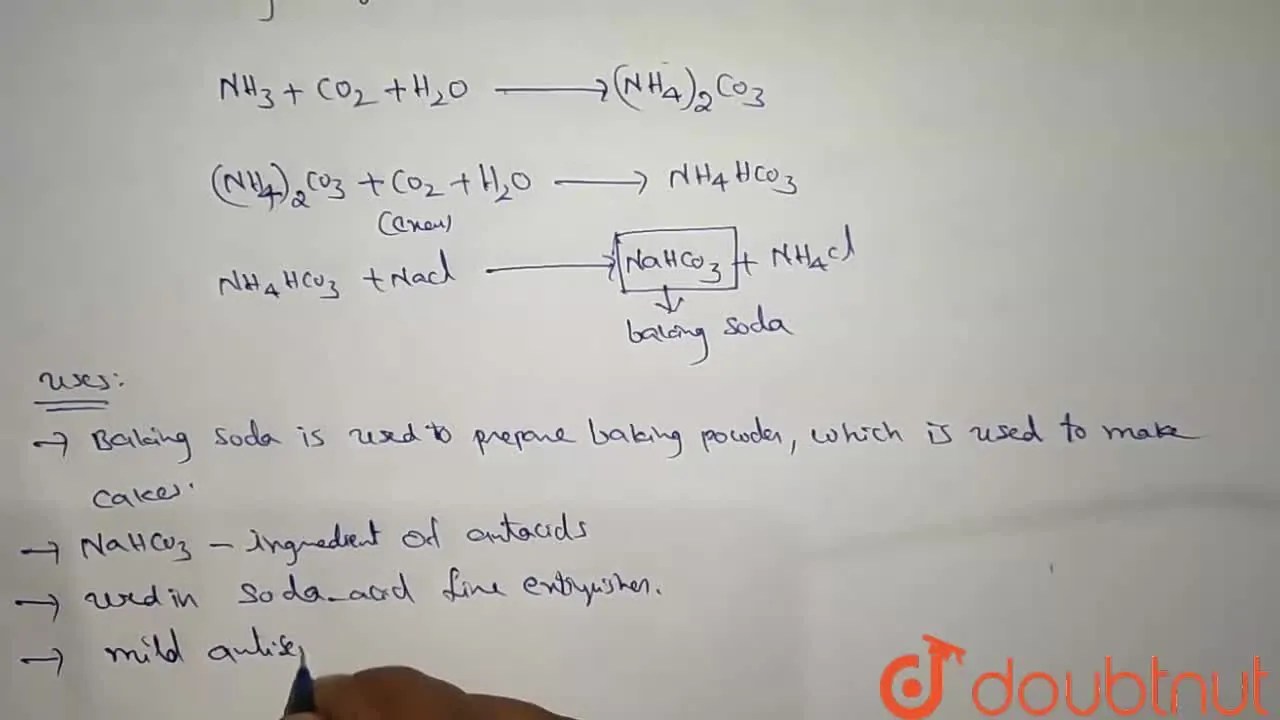 NH3 + CO2 + H2O ⟶ (NH4)2CO3
(NH4)2CO3 + CO2 + H2O ⟶ NH4HCO3
NH4HCO3 + NaCl ⟶ NaHCO3 + NH4Cl
baking soda
uses:
→ Baking soda is used to prepare baking powder, which is used to make
cakes.
→ NaHCO3 - Ingredient of antacids
→ used in soda-acid fire extinguisher.
→ mild antise
doubtnut